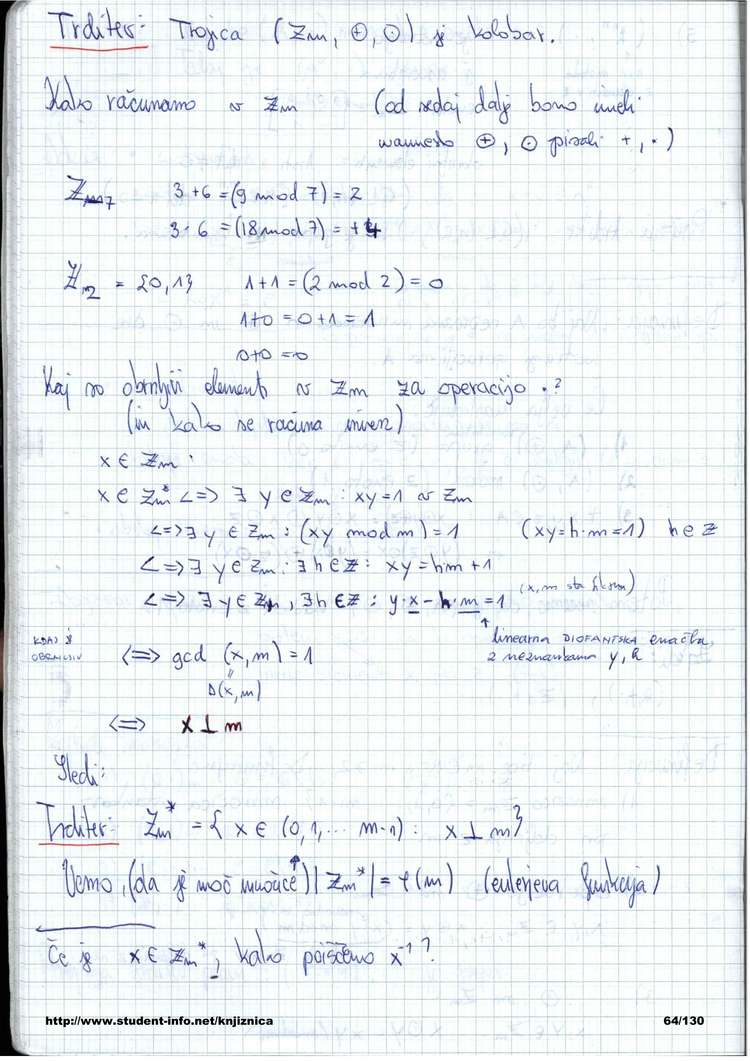 Trditev: Trojica (ℤm, ⊕, ⊙) je kolobar.
Kako računamo v ℤm (od sedaj dalje bomo imeli
namesto ⊕, ⊙ pisali +, ·)
ℤ7 3+6 = (9 mod 7) = 2
3·6 = (18 mod 7) = 4
ℤ2 = {0,1} 1+1 = (2 mod 2) = 0
1+0 = 0+1 = 1
0+0 = 0
Kaj so obrnljivi elementi v ℤm za operacijo ·?
(in kako se računa inverz)
x ∈ ℤm:
x ∈ ℤm* <=> ∃ y ∈ ℤm : xy = 1 v ℤm
<=> ∃ y ∈ ℤm : (xy mod m) = 1 (xy = h·m = 1) h ∈ ℤ
<=> ∃ y ∈ ℤm : ∃ h ∈ ℤ : xy = hm + 1
<=> ∃ y ∈ ℤm, ∃ h ∈ ℤ : y·x − h·m = 1 (x, m sta fiksna)
↑ linearna DIOFANTSKA enačba,
z neznankama y, h
KDAJ JE
<=> gcd (x,m) = 1
D(x,m)
<=> x ⊥ m
Sledi:
Trditev: ℤm* = { x ∈ (0,1,... m-1) : x ⊥ m}
Vemo, (da je moč množice↑) |ℤm*| = φ(m) (eulerjeva funkcija)
Če je x ∈ ℤm*, kako poiščemo x⁻¹?
http://www.student-info.net/knjiznica 64/130